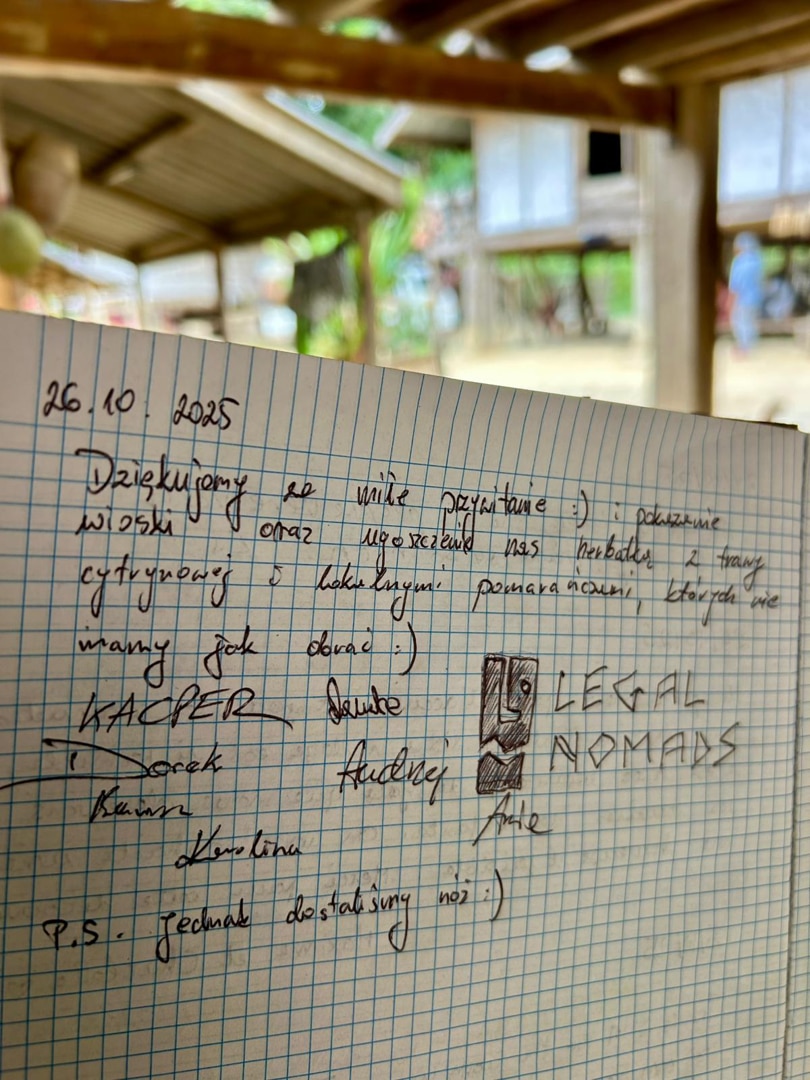 26.10.2025
Dziękujemy za miłe przywitanie :) i pokazanie
wioski oraz ugoszczenie nas herbatką z trawy
cytrynowej i lokalnymi pomarańczami, których nie
mamy jak obrać :)
KACPER
LEGAL
Dorek Andrzej NOMADS
Ania
Karolina
P.S. jednak dostaliśmy nóż :)